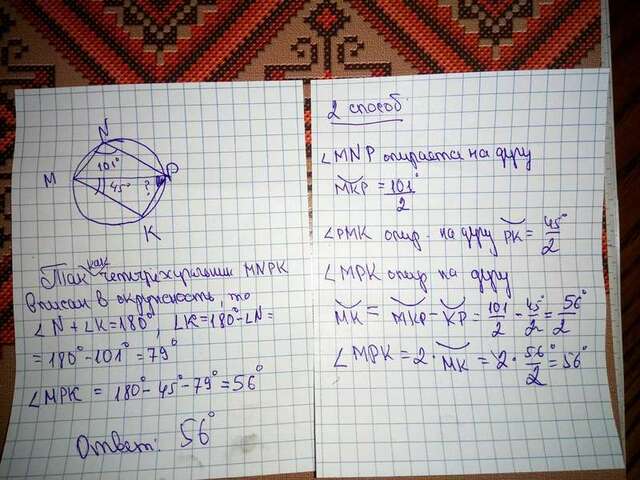 N
101°
M
45°
?
P
K
Так как четырехугольник MNPK
вписан в окружность, то
∠N+∠K=180°, ∠K=180°-∠N=
=180°-101°=79°
∠MPK = 180°-45°-79°=56°
Ответ: 56°
2 способ:
∠MNP опирается на дугу
MKP = 101°/2
∠PMK опир. на дугу PK = 45°/2
∠MPK опир на дугу
MK = MKP - KP = 101/2 - 45°/2 = 56°/2
∠MPK = 2·MK = 2·56°/2 = 56°